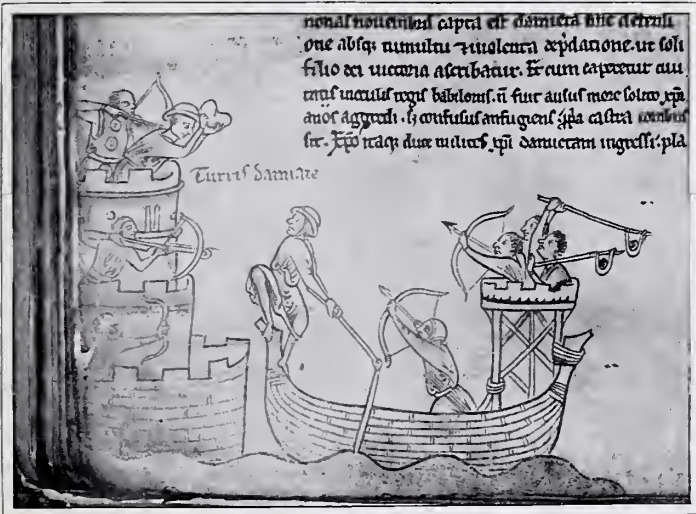 nonas nouembris capta est damieta sine defensi
one absq; tumultu ⁊ uiolenta depdatione. ut soli
filio dei uictoria ascribatur. Et cum caperetur ciui
tas in oculis regis babilonis. ñ fuit ausus more solito xpi
anos aggredi. s; confusus aufugiens ipa castra combus
sit. Xpo itaq; duce milites xpi damietam ingressi. pla
Turris Damiate